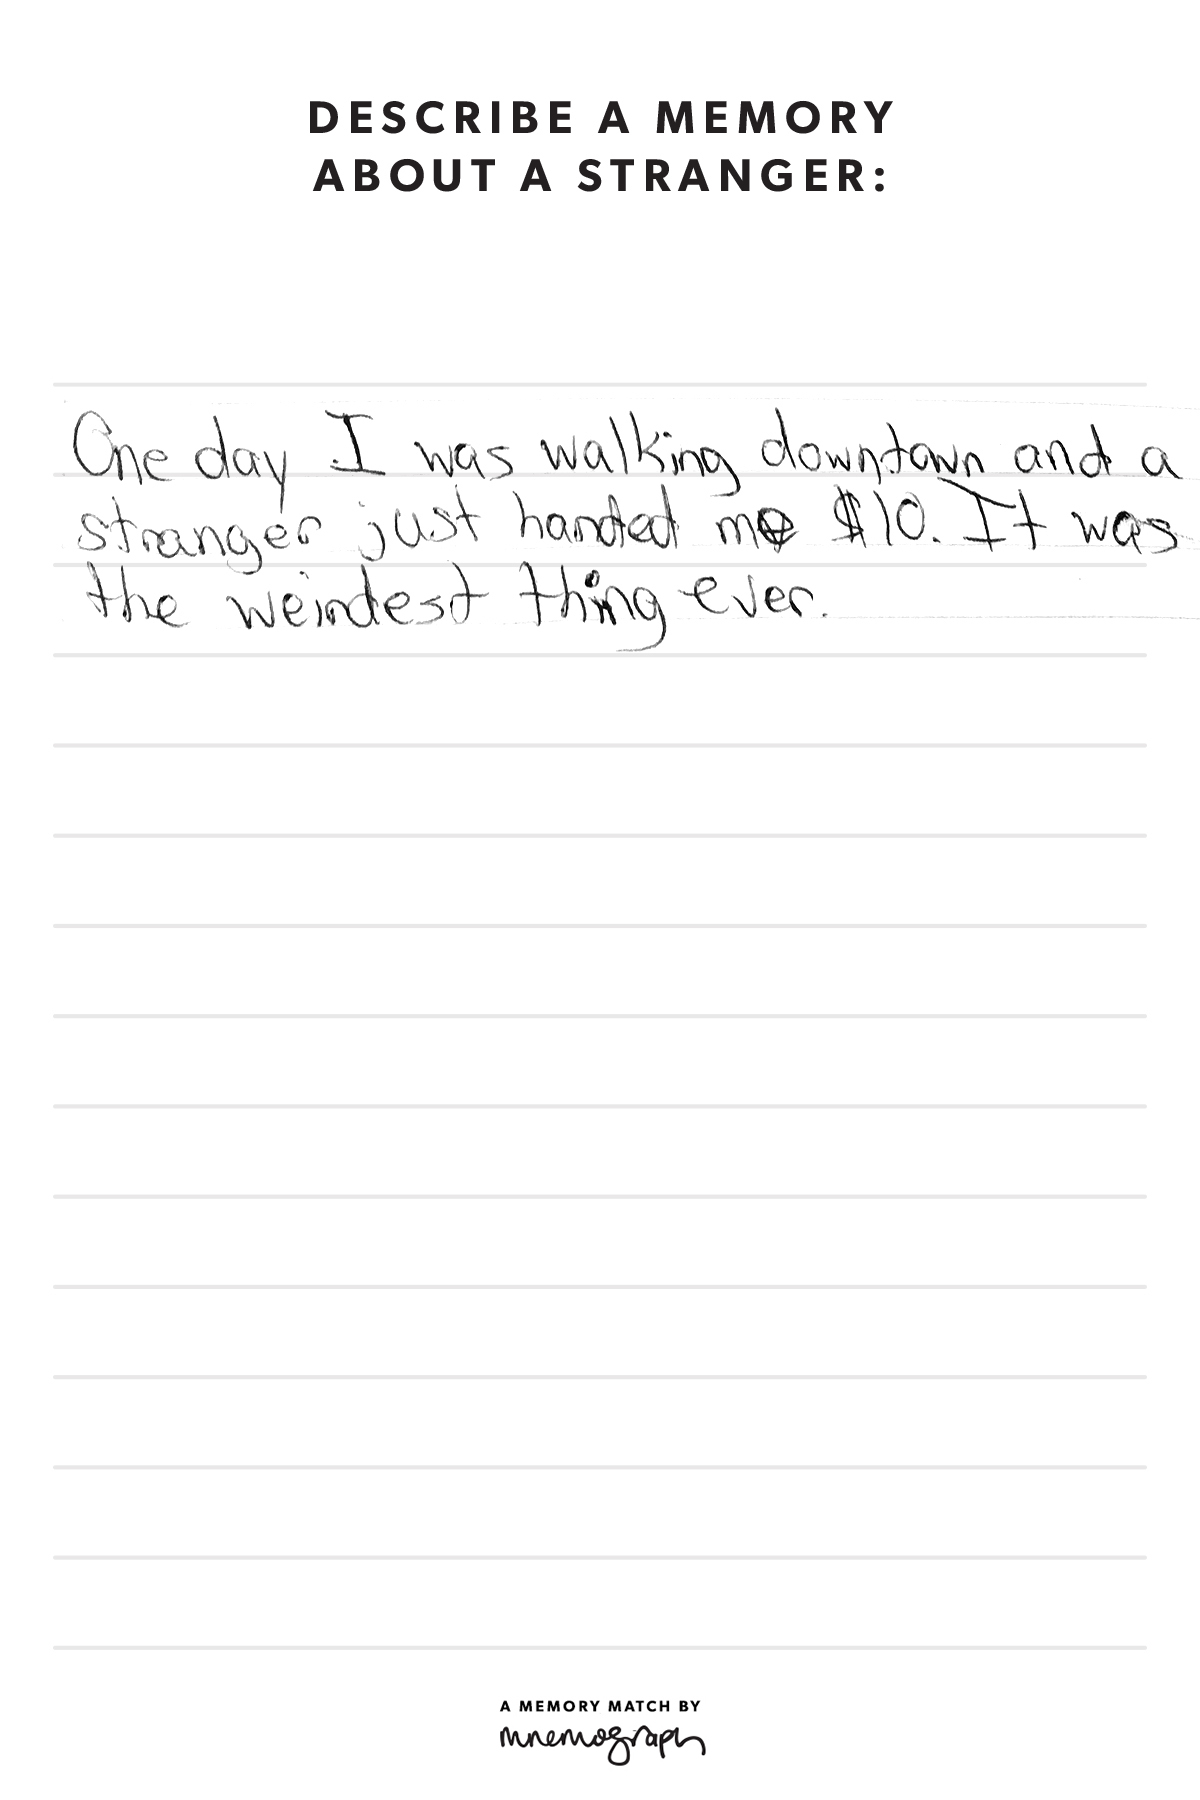 DESCRIBE A MEMORY
ABOUT A STRANGER:
One day I was walking downtown and a
stranger just handed me $10. It was
the weirdest thing ever.
A MEMORY MATCH BY
mnemograph